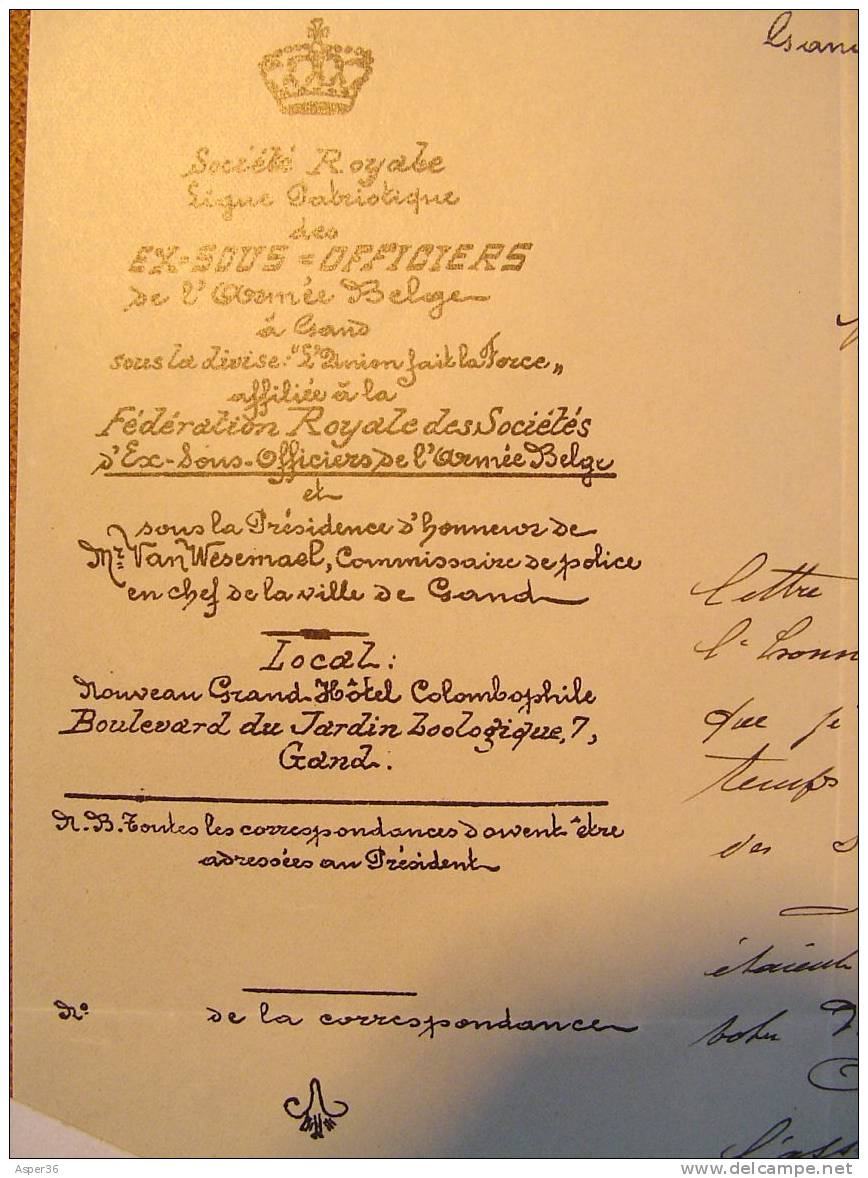 Gand
Société Royale
Ligue Patriotique
des
EX=SOUS=OFFICIERS
de l'Armée Belge
à Gand
sous la divise: "L'Union fait la Force„
affiliée à la
Fédération Royale des Sociétés
d'Ex-Sous-Officiers de l'Armée Belge
et
sous la Présidence d'honneur de
Mr. Van Wesemael, Commissaire de police
en chef de la ville de Gand
Local:
Nouveau Grand-Hôtel Colombophile
Boulevard du Jardin Zoologique, 7,
Gand.
N.B. Toutes les correspondances doivent être
adressées au Président
No. de la correspondance
lettre
l'honn
que je
temps
des
étaient
votre
l'ass
Asper36
www.delcampe.net